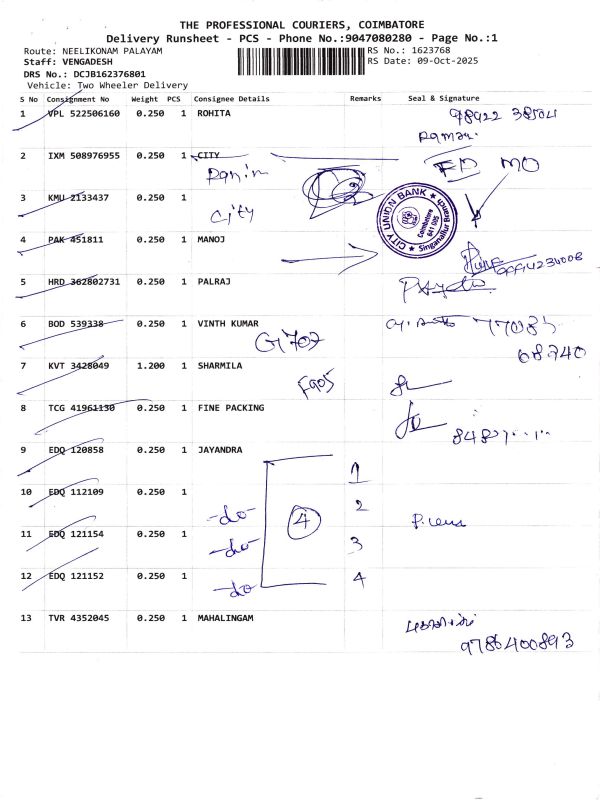 THE PROFESSIONAL COURIERS, COIMBATORE
Delivery Runsheet - PCS - Phone No.:9047080280 - Page No.:1
Route: NEELIKONAM PALAYAM RS No.: 1623768
Staff: VENGADESH RS Date: 09-Oct-2025
DRS No.: DCJB162376801
Vehicle: Two Wheeler Delivery
S No Consignment No Weight PCS Consignee Details Remarks Seal & Signature
1 VPL 522506160 0.250 1 ROHITA
2 IXM 508976955 0.250 1 CITY
3 KMU 2133437 0.250 1
City
CITY UNION BANK
Coimbatore
641 005
4 PAK 451811 0.250 1 MANOJ
5 HRD 362802731 0.250 1 PALRAJ
6 BOD 539338 0.250 1 VINTH KUMAR
G1707
68740
7 KVT 3428049 1.200 1 SHARMILA
F905
8 TCG 41961130 0.250 1 FINE PACKING
9 EDQ 120858 0.250 1 JAYANDRA
1
10 EDQ 112109 0.250 1
-do- 4 2
11 EDQ 121154 0.250 1
-do- 3
12 EDQ 121152 0.250 1
-do- 4
13 TVR 4352045 0.250 1 MAHALINGAM
9786400893